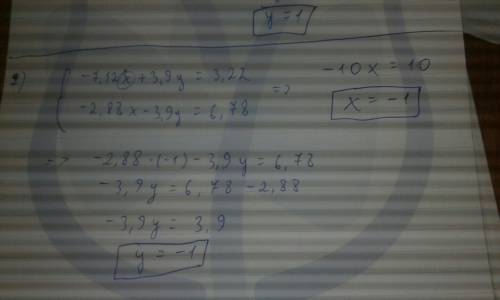 y = 1
2) { -7,12x + 3,9y = 3,22
-2,88x - 3,9y = 6,78 =>
-10x = 10
x = -1
=> -2,88 · (-1) - 3,9y = 6,78
-3,9y = 6,78 - 2,88
-3,9y = 3,9
y = -1